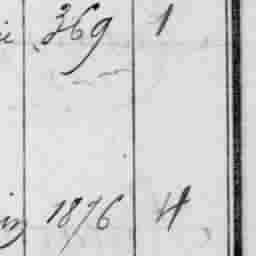 369 1
1876 4